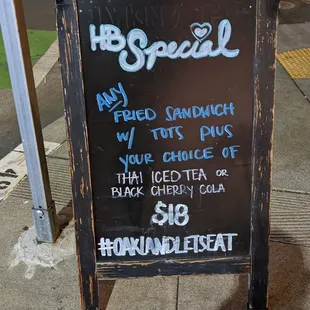 HB Special
ANY
FRIED SANDWICH
W/ TOTS PLUS
YOUR CHOICE OF
THAI ICED TEA OR
BLACK CHERRY COLA
$18
#OAKLANDLETSEAT